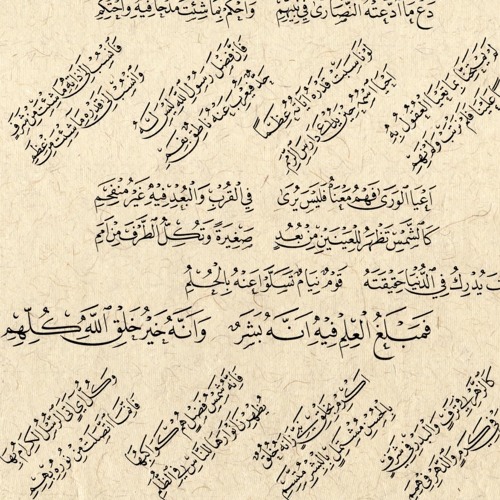 دَعْ مَا ادَّعَتْهُ النَّصَارَى فِي نَبِيِّهِمِ وَاحْكُمْ بِمَا شِئْتَ مَدْحًا فِيهِ وَاحْتَكِمِ
فَانْسُبْ إِلَى ذَاتِهِ مَا شِئْتَ مِنْ شَرَفٍ
وَانْسُبْ إِلَى قَدْرِهِ مَا شِئْتَ مِنْ عِظَمِ
فَإِنَّ فَضْلَ رَسُولِ اللَّهِ لَيْسَ لَهُ
حَدٌّ فَيُعْرِبَ عَنْهُ نَاطِقٌ بِفَمِ
لَوْ نَاسَبَتْ قَدْرَهُ آيَاتُهُ عِظَمًا
أَحْيَا اسْمُهُ حِينَ يُدْعَى دَارِسَ الرِّمَمِ
لَمْ يَمْتَحِنَّا بِمَا تَعْيَا الْعُقُولُ بِهِ
عَلَيْنَا فَلَمْ نَرْتَبْ وَلَمْ نَهِمِ
أَعْيَا الْوَرَى فَهْمُ مَعْنَاهُ فَلَيْسَ يُرَى فِي الْقُرْبِ وَالْبُعْدِ فِيهِ غَيْرُ مُنْفَحِمِ
كَالشَّمْسِ تَظْهَرُ لِلْعَيْنَيْنِ مِنْ بُعُدٍ صَغِيرَةً وَتُكِلُّ الطَّرْفَ مِنْ أَمَمِ
يُدْرِكُ فِي الدُّنْيَا حَقِيقَتَهُ قَوْمٌ نِيَامٌ تَسَلَّوْا عَنْهُ بِالْحُلُمِ
فَمَبْلَغُ الْعِلْمِ فِيهِ أَنَّهُ بَشَرٌ وَأَنَّهُ خَيْرُ خَلْقِ اللَّهِ كُلِّهِمِ
وَكُلُّ آيٍ أَتَى الرُّسْلُ الْكِرَامُ بِهَا
فَإِنَّمَا اتَّصَلَتْ مِنْ نُورِهِ بِهِمِ
فَإِنَّهُ شَمْسُ فَضْلٍ هُمْ كَوَاكِبُهَا
يُظْهِرْنَ أَنْوَارَهَا لِلنَّاسِ فِي الظُّلَمِ
أَكْرِمْ بِخَلْقِ نَبِيٍّ زَانَهُ خُلُقٌ
بِالْحُسْنِ مُشْتَمِلٍ بِالْبِشْرِ مُتَّسِمِ
كَالزَّهْرِ فِي تَرَفٍ وَالْبَدْرِ فِي شَرَفٍ
فِي كَرَمٍ وَالدَّهْرِ فِي هِمَمِ